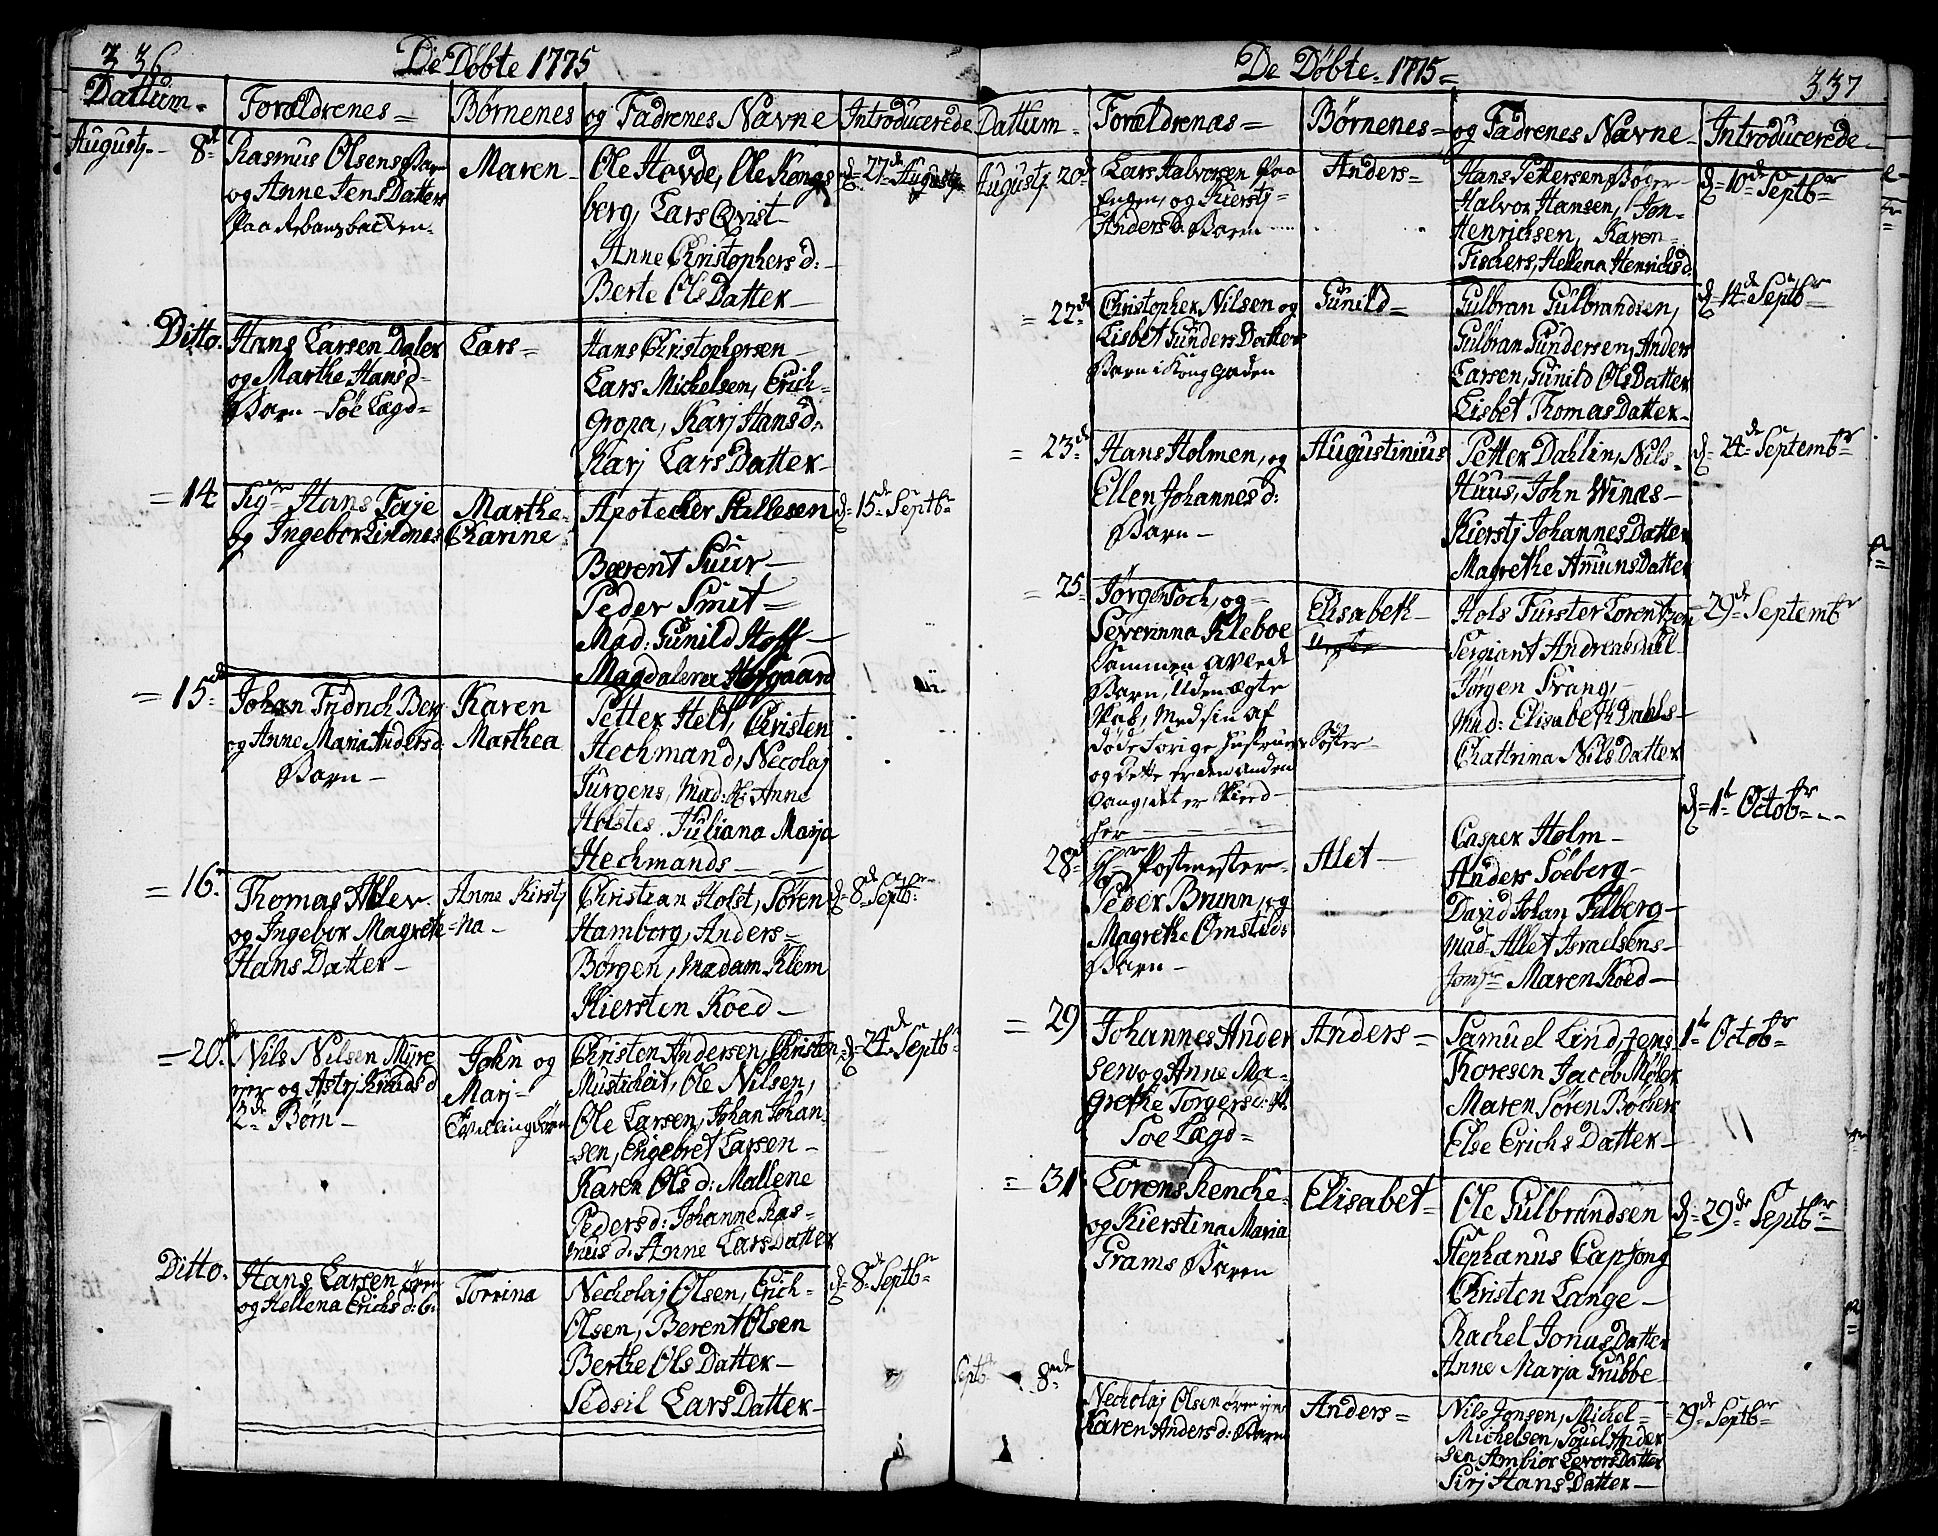 336
De Døbte 1775
Dattum - Forældrenes = Børnenes og Fadrenes Navne Introducerede
Augustj - 8de
Rasmus Olsens Barn
og Anne Jens Datters
Paa
Maren -
Ole Hovde, Ole Kongs
berg, Lars Qvist
Anne Christophers d: -
Berte Ols Datter -
d= 27de Augustj
Ditto.
Hans Larsen Daler
og Marthe Hans d -
Barn - Søe Lægd =
Lars =
Hans Christophersen
Lars Michelsen, Erich
Gropa, Karj Hans d:
Karj Lars Datter -
= 14
Sigr Hans Faje
og Ingebor Lindnes
Marthe
Charine
Apotecher Hillesen
Bærent Suur -
Peder Smit =
Mad: Gunild Hoff -
Magdalena
d= 15de Septbr
= 15de
Johan Fridrich Berg
og Anne Maria Anders d:
Barn -
Karen
Marthea
Petter Helt, Christen
Hechmand, Necolaj
Jürgens, Mad: Anne
Holstes. Juliana Marja
Hechmands -
= 16
Thomas
og Ingebor Magrete
Hans Datter -
Anne Kirstj
= na -
Christian Holst, Søren
Hamborg, Anders =
Børgen, Madam Klem
Kiersten Koed -
d= 8de Septbr
= 20de
Nils Nilsen Myre
og Astrj Knuds d
2de Børn -
John og
Marj -
Tvillingbørn
Christen Andersen, Christen
Ole Nilsen,
Ole Larsen, Johan Johan
sen, Engebret Larsen -
Karen Ols d: Mallene
Peders d: Johanne Ras =
mus d: Anne Lars Datter
d= 24de Septbr
Ditto.
Hans Larsen ören
og Hellena Erichs d: B.
Torrina
Necholaj Olsen, Erich -
Olsen, Berent Olsen
Berthe Ols Datter -
Sedsil Lars Datter -
d= 8de Septbr
337
De Døbte = 1775 =
Dattum - Forældrenas = Børnenes = og Fadrenes Navne Introducerede
Augustj 20de
Lars Halvorsen Paa
Engen, og Kierstj
Anders d: Barn
Anders =
Hans Pettersen
Halvor Hansen, Jon
Henrichsen, Karen
Fischers, Hellena Henrichs d
d= 10de Septbr
= 22de
Christopher Nilsen og
Lisbet Gunders Datters
Barn i Kong Gaden
Gunild =
Gulbran Gulbrandsen,
Gulbran Gundersen, Anders
Larsen, Gunild Ols Datter
Lisbet Thomas Datter -
d= 14de Septbr
= 23de
Hans Holmen, og
Ellen Johannes d:
Barn -
Augustinius
Petter Dahlin, Nils
Huus, John Winæs -
Kierstj Johannes Datter
Magrethe Amuns Datter
d= 24de Septembr
= 25
Jørgen Foch, og =
Severinna Kleboe
Sammen avlede
Barn, Uden ægte
Skab, Med sin af
døde Forige Hustrues
og Dette er den anden
Gang, det er Skeed -
her
Elisabeth -
Søster
Hols Furster Lorentzen
Sergiant Andreas
Jørgen Prang, -
Mad: Elisabeth Dahls -
Chattrina Nils Datter
29de Septembr
28de
Postmester
Peder Brunn, og
Magrethe Omsteds
Barn -
Alet -
Casper Holm -
Anders Söeberg -
David Johan Filberg -
Mad. Allet Israelsens -
Jomfr Maren Koed -
d= 1t Octobr
= 29
Johannes Ander
sen og Anne Ma -
grethe Torgers d:
Søe Lægd =
Anders =
Samuel Lind, Jens
Thoresen Jacob Møler
Maren Søren Bochers
Else Erichs Datter -
1te Octobr
= 31
Lorens Kenche
og Kierstina Maria
Grams Barn
Elisabet
Ole Gulbrandsen
Stephanus Capjong
Christen Lange -
Rachel Jonas Datter
Anne Marja Grubbe
d= 29de Septbr
Septbr 8de
Necholaj Olsen
Karen Anders d: Barn
Anders =
Nils Jonsen, Michel =
Michelsen, Poul Ander
sen Ambior Levors Datter
Sirj Hans Datter -
29de Septbr